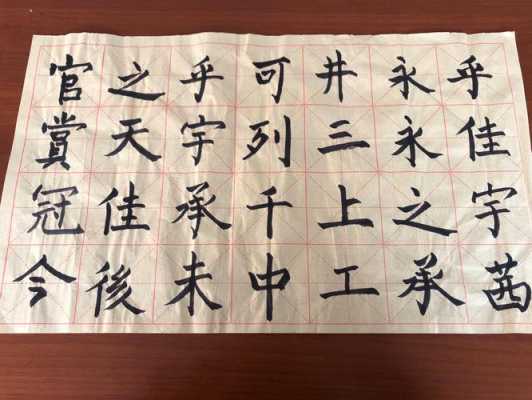 乎佳宇茜
永永之承
井三上工
可列千中
乎宇承未
之天佳後
官賞冠今